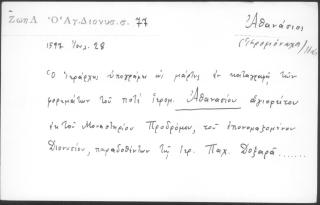 Ζωη Λ Ὁ Ἁγ. Διονυσ. σ. 77
Ἀθανάσιος
(ἱερομόναχος)
1597 Ἰουλ. 28
Ὁ ἱεράρχης ὑπογράφει ὡς μάρτυς ἐν καταγραφῇ τῶν
φορεμάτων τοῦ ποτὲ ἱερομ. Ἀθανασίου ἀχιορείτου
ἐκ τοῦ Μοναστηρίου Προδρόμου, τοῦ ἐπονομαζομένου
Διονυσίου, παραδοθέντων τῇ ἱερ. Παχ. Δοξαρᾶ.......